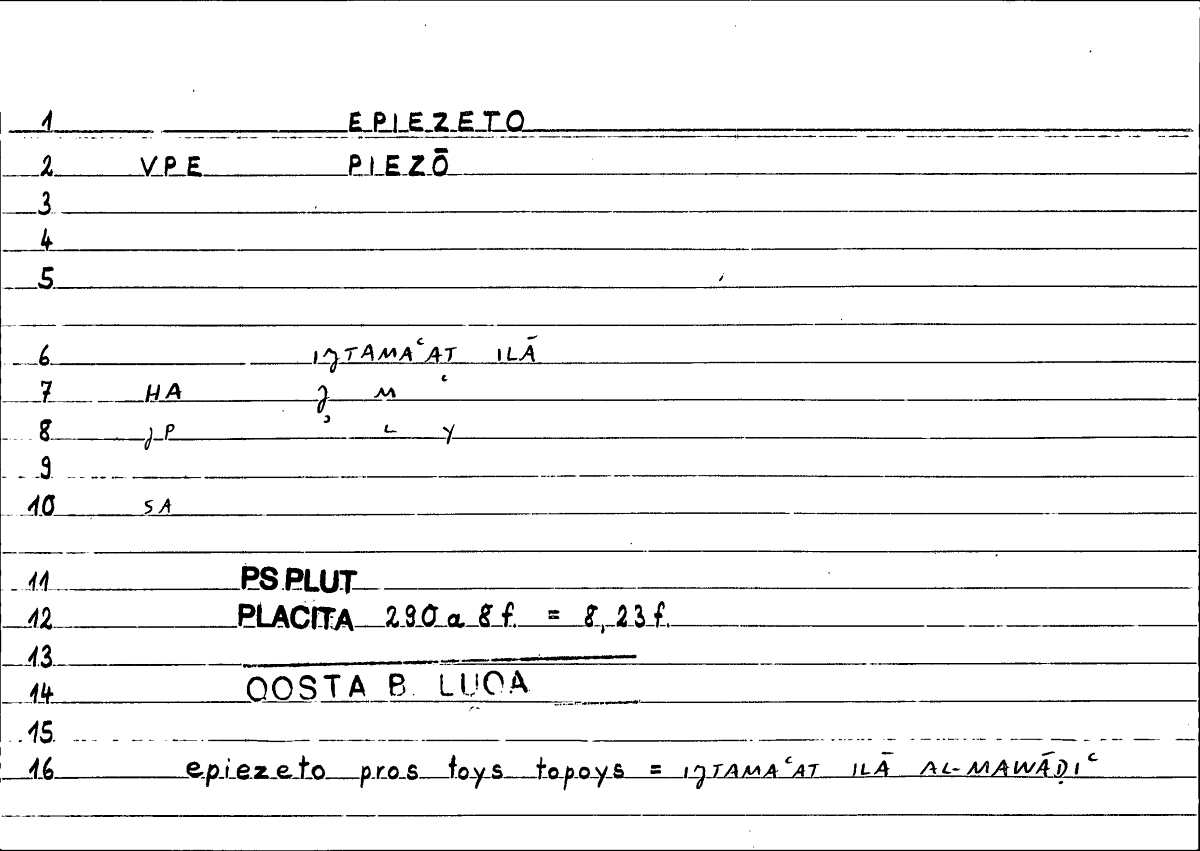 1 EPIEZETO
2 VPE PIEZŌ
3
4
5
6 IǧTAMAʿAT ILĀ
7 HA ǧ M ʿ
8 ȷP ʾ L Y
9
10 SA
11 PS.PLUT
12 PLACITA 290 a 8 f. = 8,23 f.
13
14 QOSTA B. LUQA
15
16 epiezeto pros toys topoys = IǧTAMAʿAT ILĀ AL-MAWĀḌIʿ